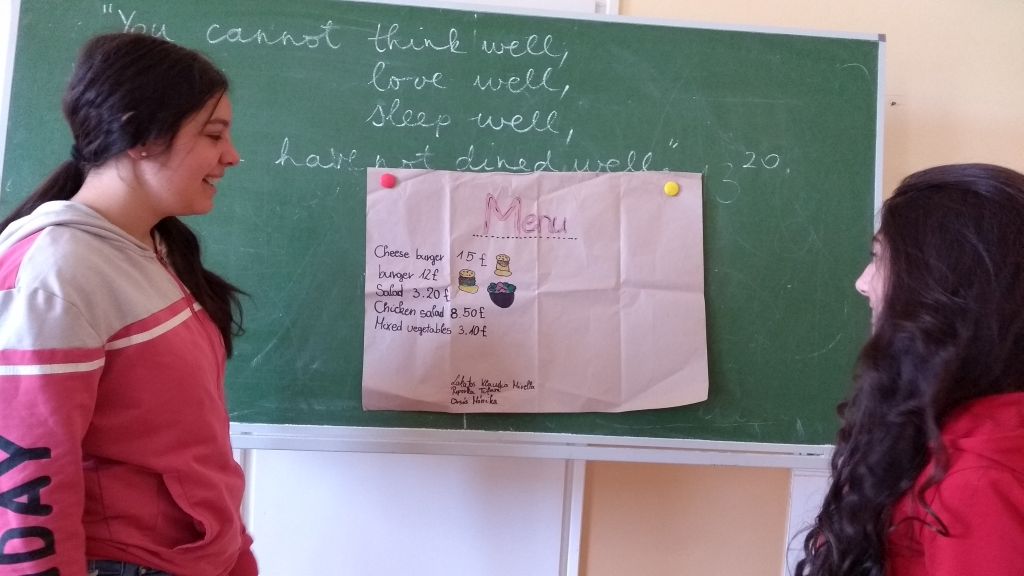 "You cannot think well,
love well,
sleep well,
have not dined well."
20.
Menu
Cheese burger 15£
burger 12£
Salad 3.20£
Chicken salad 8.50£
Mixed vegetables 3.10£
Klaudia Mirella
DAY